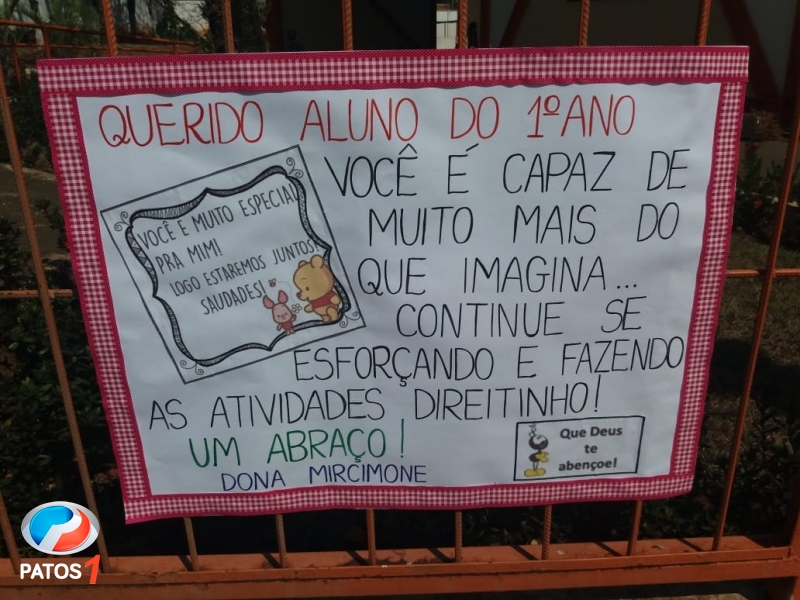 QUERIDO ALUNO DO 1º ANO
VOCÊ É CAPAZ DE
MUITO MAIS DO
QUE IMAGINA...
CONTINUE SE
ESFORÇANDO E FAZENDO
AS ATIVIDADES DIREITINHO!
UM ABRAÇO!
DONA MIRCIMONE
VOCÊ E MUITO ESPECIAL
PRA MIM!
LOGO ESTAREMOS JUNTOS!
SAUDADES!
Que Deus
te
abençoe!
PATOS1